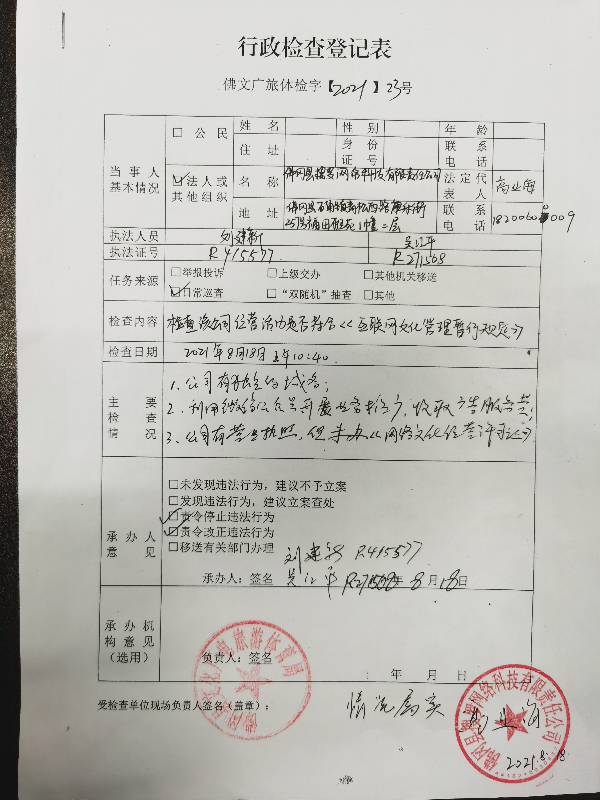 行政检查登记表
佛文广旅体检字【2021】23号
当事人基本情况
□公民 姓名 性别 年龄
住址 身份证号 联系电话
☑法人或其他组织 名称 佛冈县 网络科技有限责任公司 法定代表人 高业海
地址 佛冈县石角镇 二层 联系电话
执法人员 刘建新 吴江平
执法证号 R415577 R271568
任务来源 □举报投诉 □上级交办 □其他机关移送
☑日常巡查 □“双随机”抽查 □其他
检查内容 检查该公司经营活动是否符合《互联网文化管理暂行规定》
检查日期 2021年8月18日上午10:40.
主要检查情况
1.公司有独立的域名;
2.利用微信公众号开展业务推广,收取广告服务费;
3.公司有营业执照,但未办《网络文化经营许可证》
承办人意见
□未发现违法行为,建议不予立案
□发现违法行为,建议立案查处
☑责令停止违法行为
☑责令改正违法行为
□移送有关部门办理
刘建新 R415577
承办人:签名 吴江平 R271568 年8月18日
承办机构意见(选用)
负责人:签名
年 月 日
受检查单位现场负责人签名(盖章): 情况属实 高业海
2021.8.18